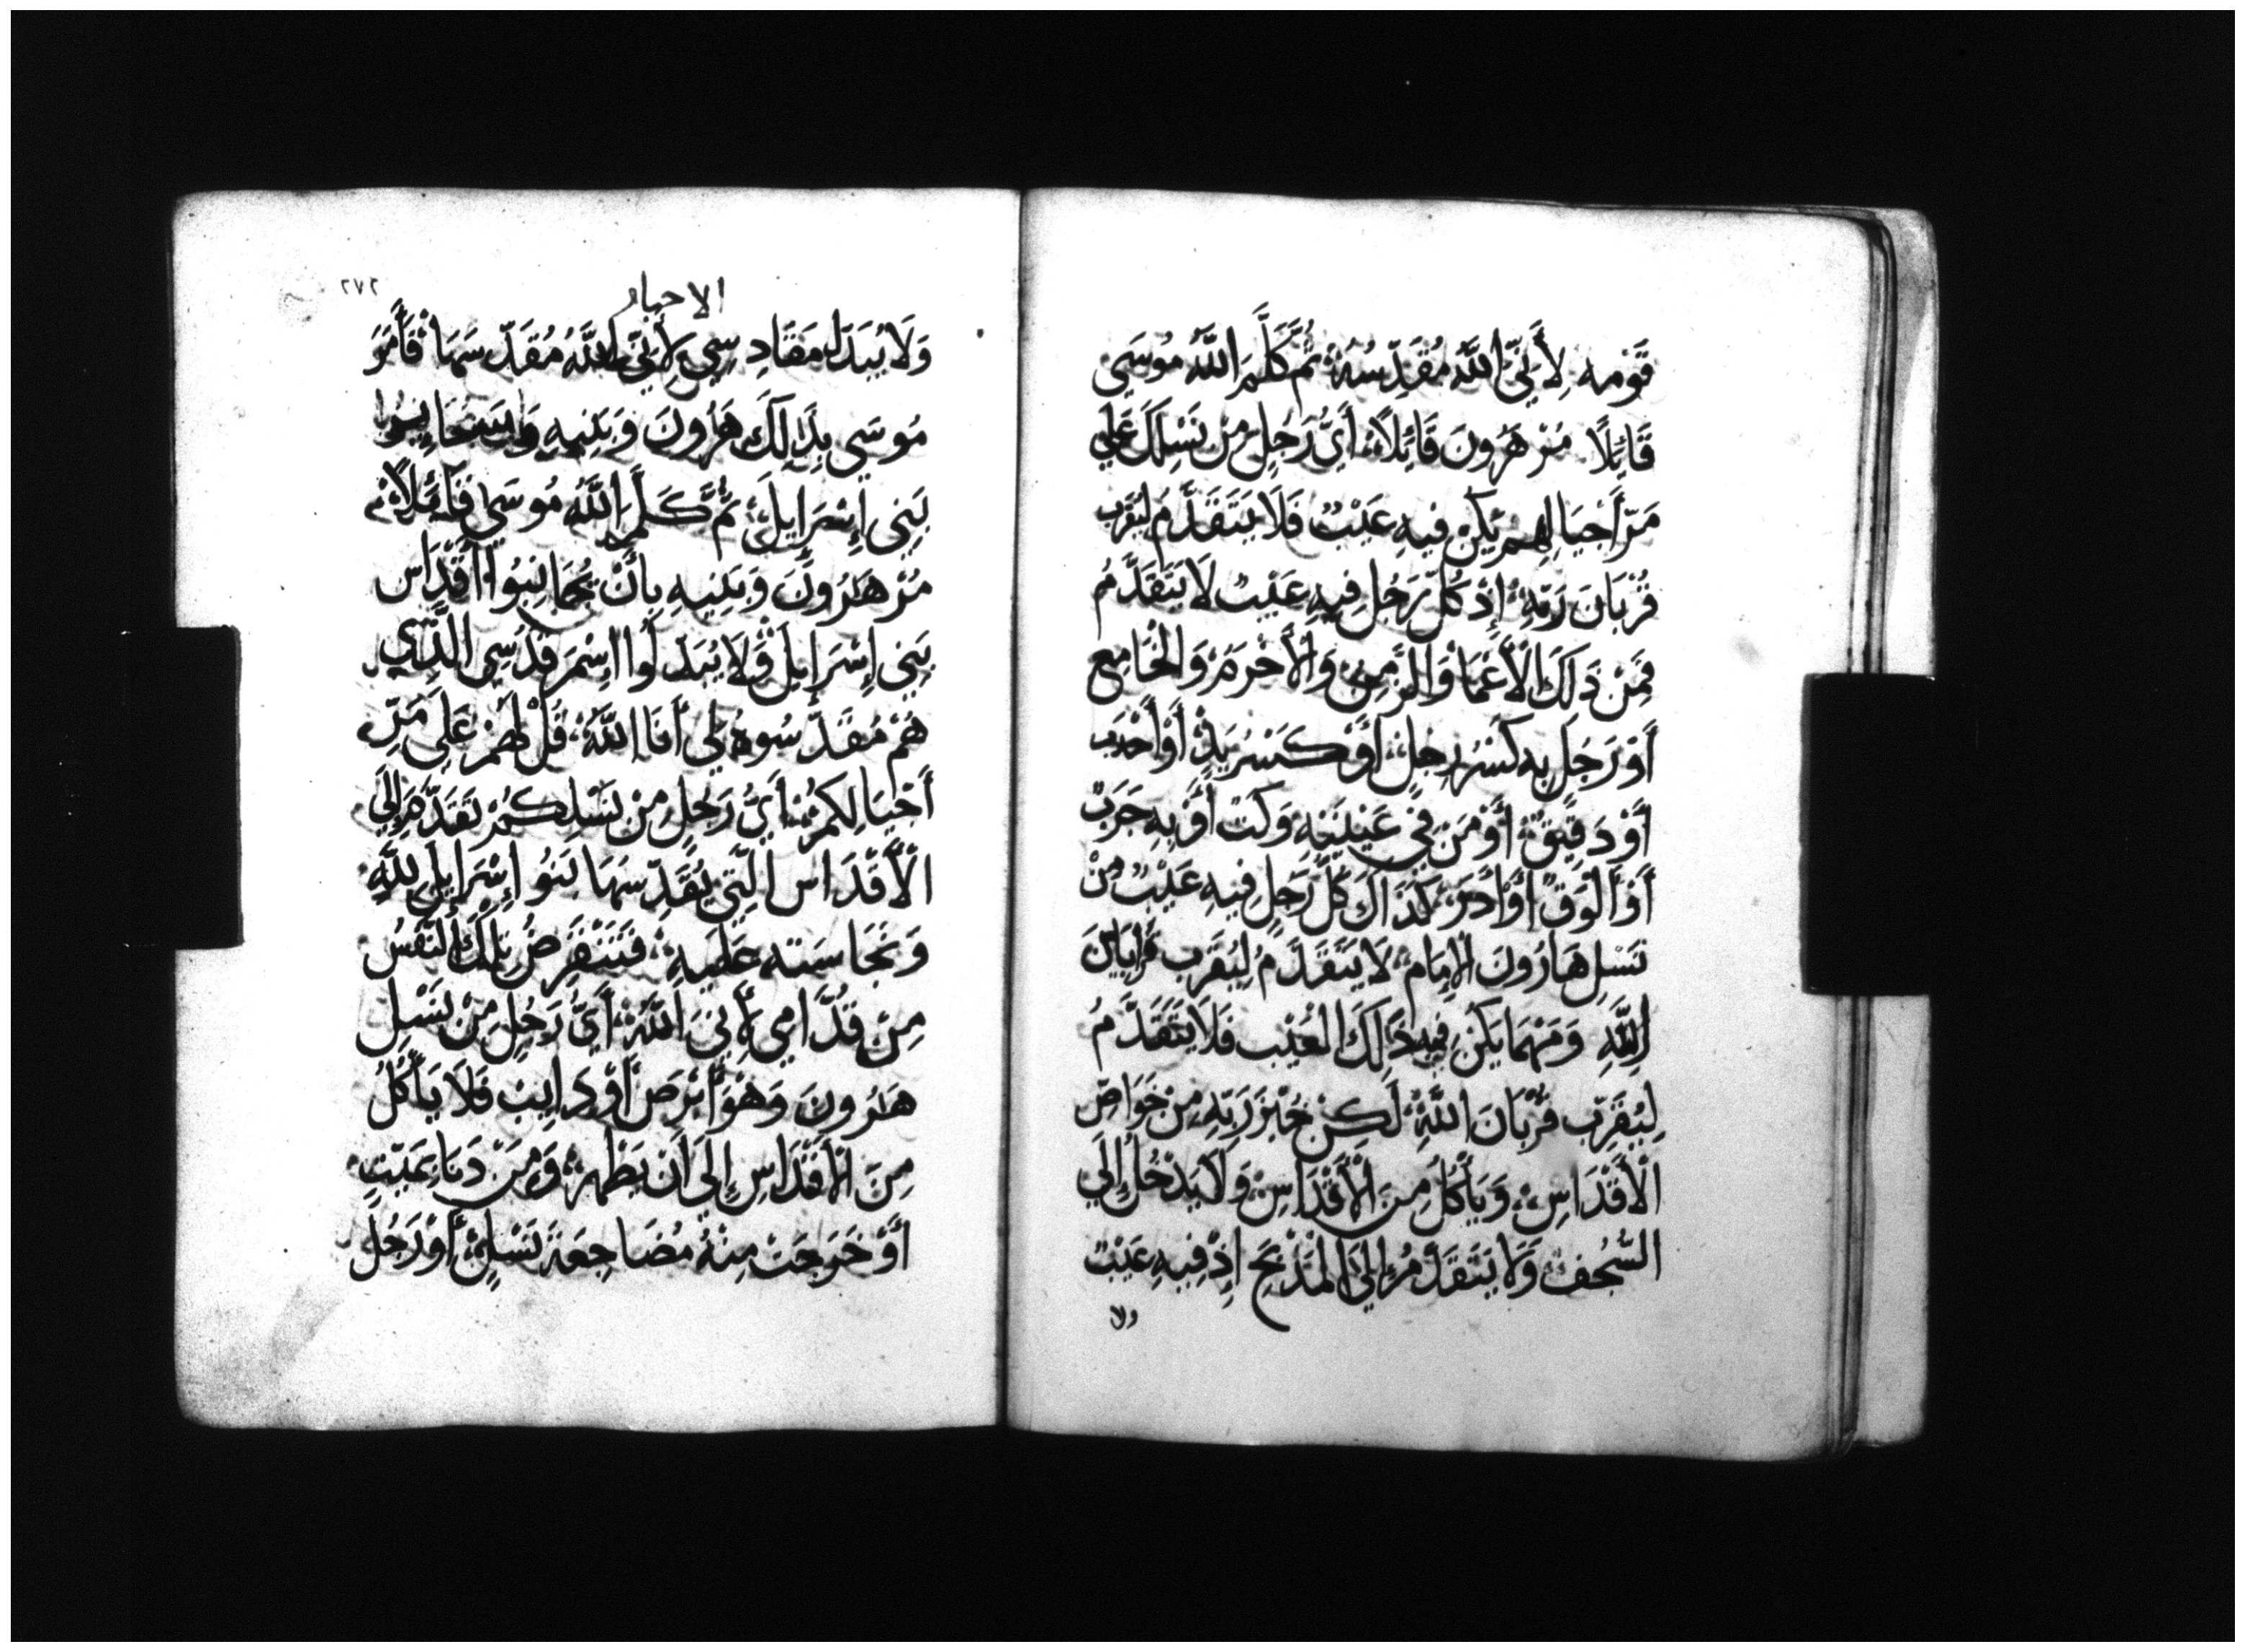 قَومه لِأَنِّي اللَّهُ مُقَدِّسُهُ ثُمَّ كَلَّمَ اللَّهُ مُوسَي
قَائِلًا مُرْ هَرُونَ قَائِلًا أَيُّ رَجُلٍ مِنْ نَسْلِكَ عَلَي
مَرّ أَجْيَالِهِمْ يَكُنْ فِيهِ عَيْبٌ فَلَا يَتَقَدَّمُ لِيُقَرِّب
قُرْبَانَ رَبِّهِ إِذْ كُلُّ رَجُلٍ فِيهِ عَيْبٌ لَا يَتَقَدَّمُ
فَمِنْ ذَلِكَ الْأَعْمَا وَالزَّمِنْ وَالْأَخْرَمْ وَالْخَامِع
أَوْ رَجُل بِهِ كَسْرُ رِجْلٍ أَوْ كَسْرُ يَدٍ أَوْ أَحْدَب
أَوْ دَقِيقٌ أَوْ مَنْ فِي عَيْنَيْهِ وَكَتْ أَوْ بِهِ جَرَبْ
أَوْ أَلْوَقْ أَوْ أَدَرَ كَذَاكَ كُلُّ رَجُلٍ فِيهِ عَيْبٌ مِنْ
نَسْلِ هَارُونَ الْإِمَام لَا يَتَقَدَّمُ لِيُقَرِّب قَرَابَيْنَ
اللَّهِ وَمَهْمَا يَكُن فِيهِ ذَالِكَ الْعَيْب فَلَا يَتَقَدَّمُ
لِيُقَرِّب قُرْبَانَ اللَّهِ لَكِنْ خُبْزَ رَبِّهِ مِنْ خَوَاصّ
الْأَقْدَاسِ وَيَأْكُل مِنَ الْأَقْدَاسِ وَلَا يَدْخُلْ إِلَي
السُّجُفْ وَلَا يَتَقَدَّمْ إِلَي الْمَذْبَحِ إِذْ فِيهِ عَيْبٌ
ولا
٢٧٦
الاحبار
وَلَا يُبَدِّل مَقَادِسِي لِأَنِّي اللَّهُ مُقَدِّسهَا فَأَمَرَ
مُوسَي بِذَالِكَ هَرُونَ وَبَنِيهِ وَسَائِر
بَنِي إِسْرَايِلَ ثُمَّ كَلَّمَ اللَّهُ مُوسَي قَائِلًا
مُرْ هَرُونَ وَبَنِيهِ بِأَنْ يُجَانِبُوا أَقْدَاس
بَنِي إِسْرَايِلَ وَلَا يُبَدِلُوا اِسْمَ قُدْسِي الَّذِي
هُمْ مُقَدِّسُوهُ لِي أَنَا اللَّهُ قُلْ لَهُمْ عَلَي مَرِّ
أَجْيَالِكُمْ أَيُّ رَجُلٍ مِنْ نَسْلِكُمْ تَقَدَّمَ إِلَي
الْأَقْدَاس الَّتِي يُقَدِّسهَا بَنُو إِسْرَايِل لِلَّهِ
وَنَجَاسَته عَلَيهِ فَتَنْقَرِضُ تِلْكَ النَّفْسُ
مِنْ قُدَّامِي لِأَنِّي اللَّهُ أَيُّ رَجُلٍ مِنْ نَسْلِ
هَرُونَ وَهُوَ أَبْرَص أَوْ ذايِب فَلَا يَأْكُلُ
مِنَ الْأَقْدَاسِ إِلَي أَن يَطْهر وَمَنْ دَنَا بِمَيِّتٍ
أَوْ خَرَجَتْ مِنْهُ مُضَاجِعَة نَسْلٍ أَوْ رَجُل